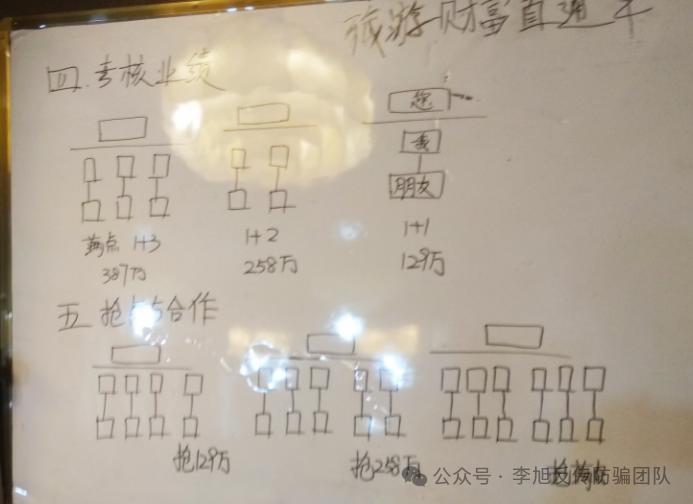 旅游财富直通车
四.考核业绩
您
我
朋友
满点 1+3
1+2
1+1
387万
258万
129万
五 抢 与合作
抢129万
抢258万
抢满点
公众号·李旭反传防骗团队